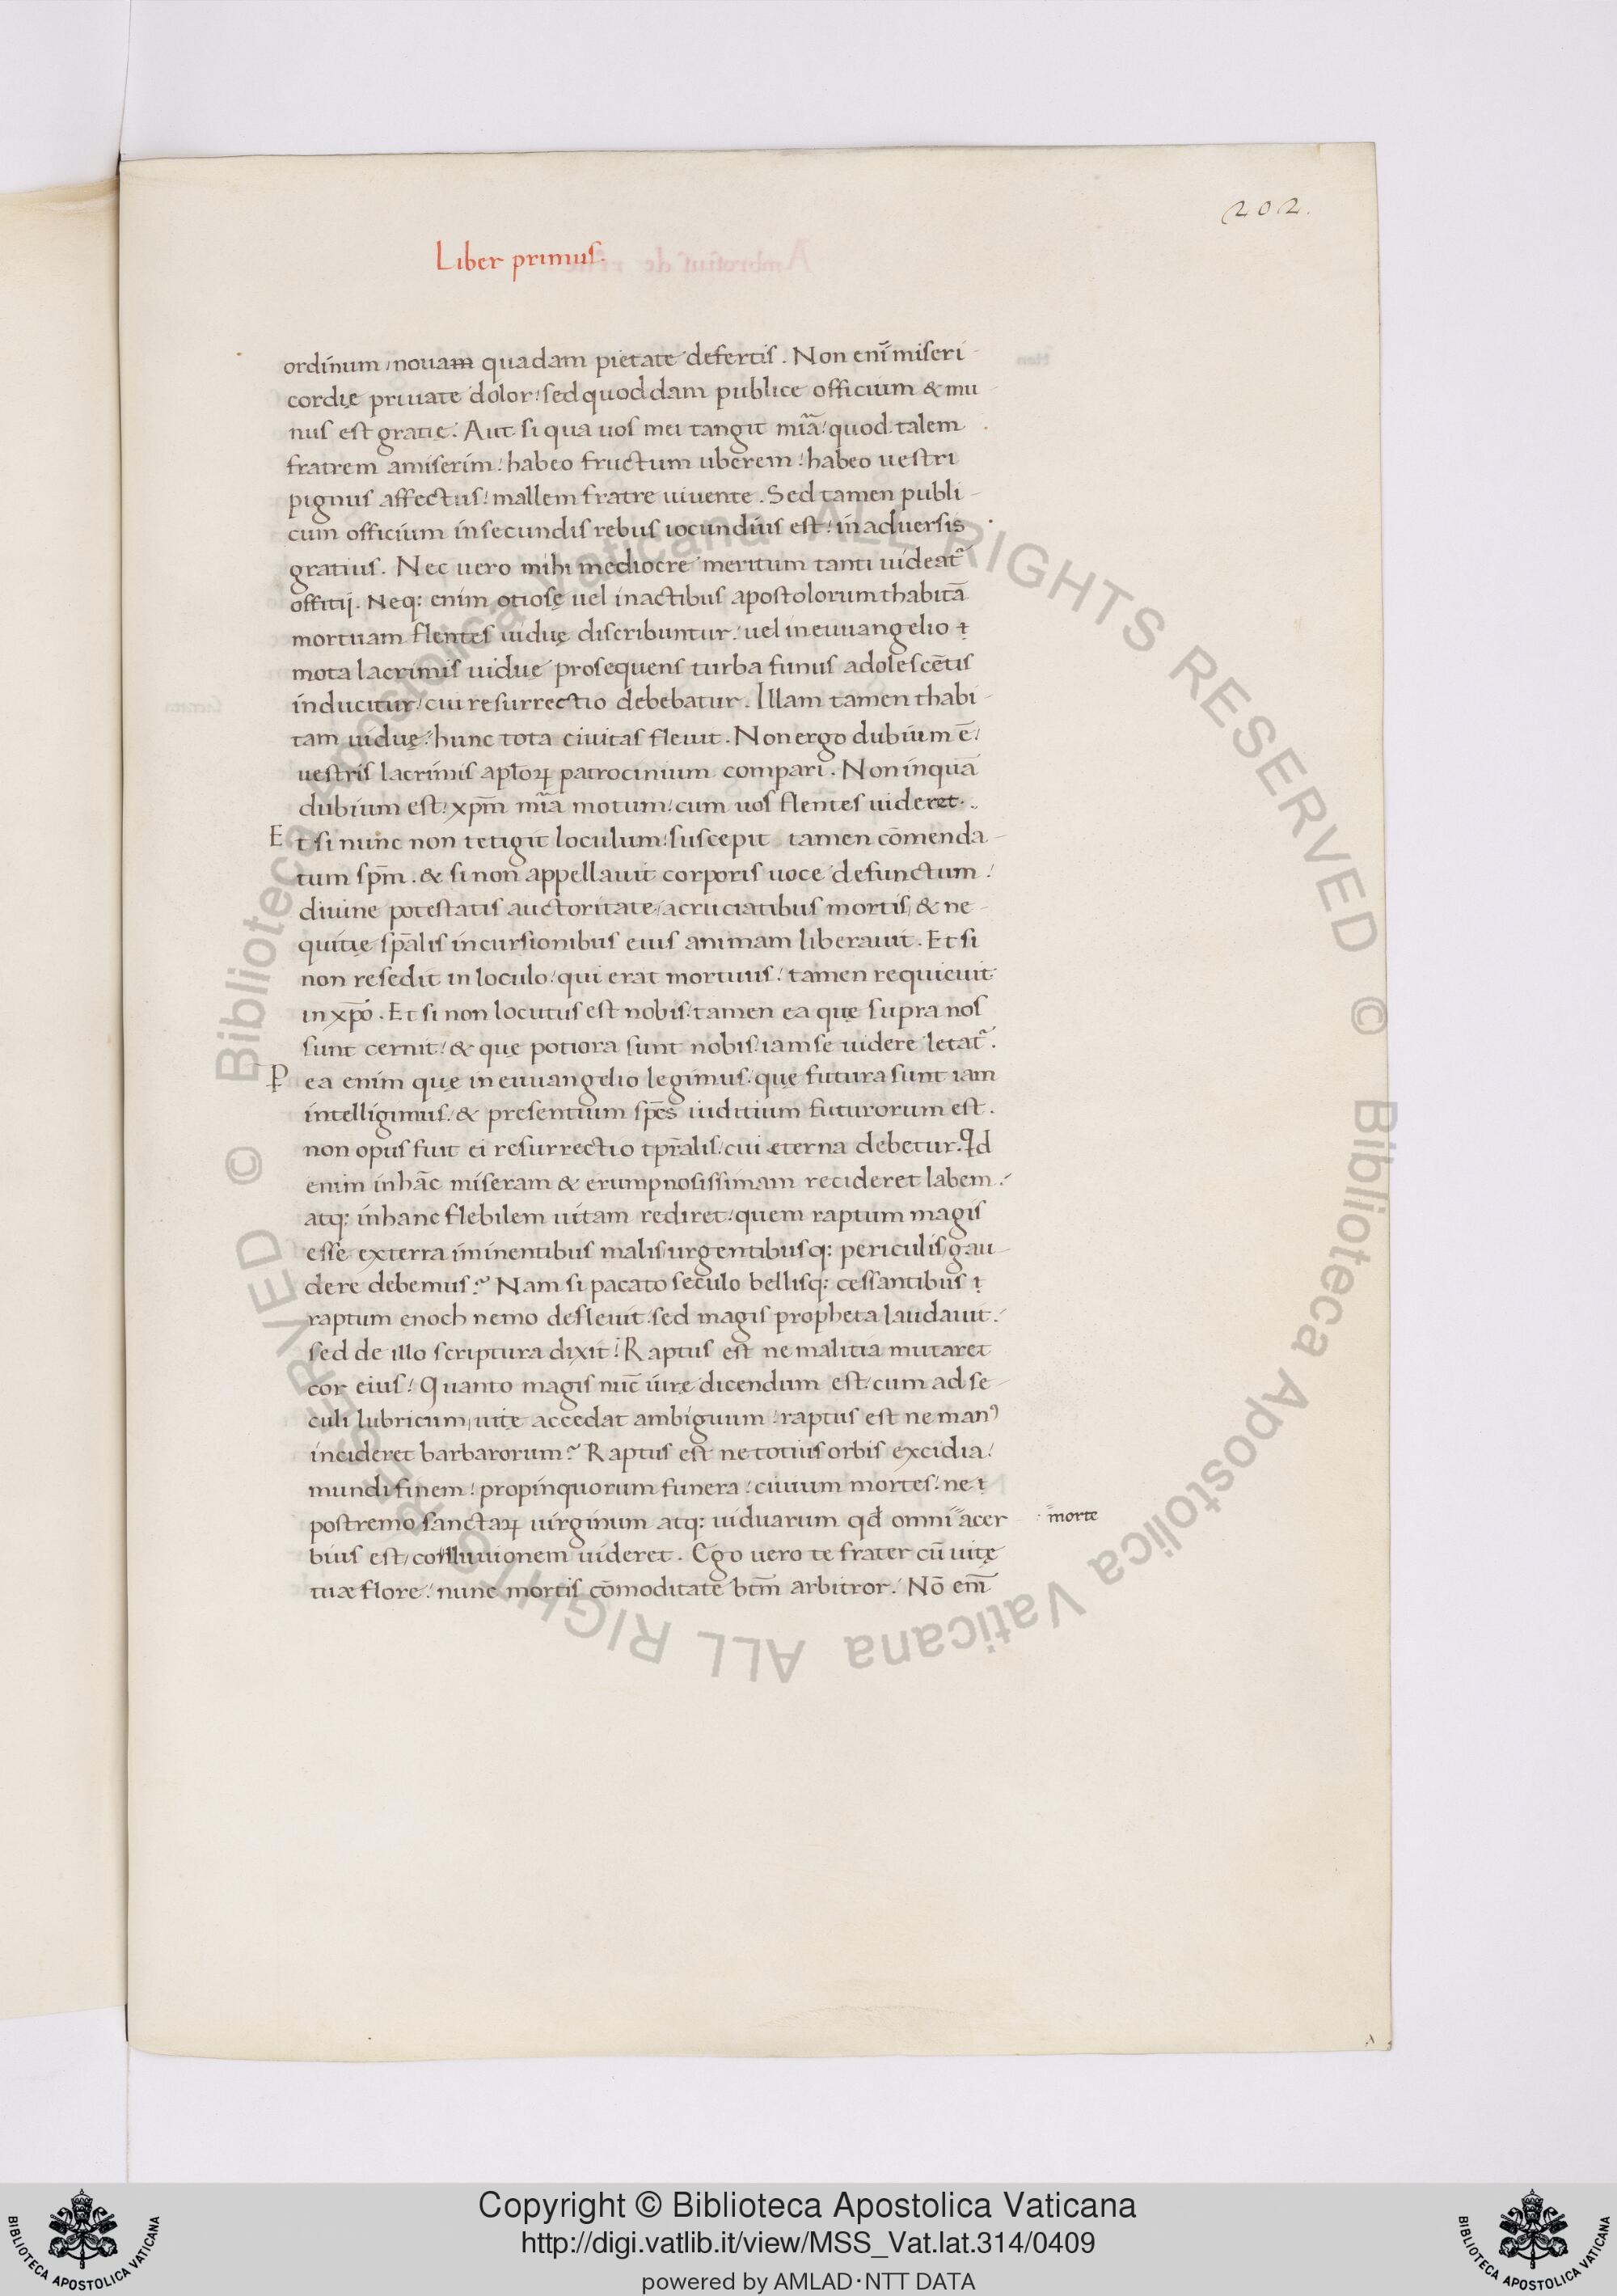 202.
Liber primus.
ordinum / nouam quadam pietate defertis. Non eni̅ miseri-
cordię priuate dolor: sed quoddam publice officium & mu-
nus est gratię. Aut si qua uos mei tangit mi̅a: quod talem
fratrem amiserim: habeo fructum uberem: habeo uestri
pignus affectus: mallem fratre uiuente. Sed tamen publi-
cum officium in secundis rebus iocundius est: in aduersis
gratius. Nec uero mihi mediocre meritum tanti uideat᷑
offitij. Neq: enim otiosę uel in actibus apostolorum thabita̅
mortuam flentes uiduę discribuntur: uel in euuangelio ⁊
mota lacrimis uiduę prosequens turba funus adolesce̅tis
inducitur: cui resurrectio debebatur. Illam tamen thabi-
tam uiduę: hunc tota ciuitas fleuit. Non ergo dubium e̅/
uestris lacrimis apl̅oꝝ patrocinium compari. Non inqua̅
dubium est: xp̅m mi̅a motum: cum uos flentes uideret.
Et si nunc non tetigit loculum: suscepit tamen co̅menda-
tum sp̅m. & si non appellauit corporis uoce defunctum:
diuine potestatis auctoritate / a cruciatibus mortis / & ne-
quitię sp̅alis incursionibus eius animam liberauit. Et si
non resedit in loculo: qui erat mortuus: tamen requieuit
in xp̅o. Et si non locutus est nobis: tamen ea quę supra nos
sunt cernit: & quę potiora sunt nobis: iam se uidere letat᷑.
Pea enim quę in euuangelio legimus. quę futura sunt iam
intelligimus: & presentium sp̅es iuditium futurorum est.
non opus fuit ei resurrectio tp̅ralis: cui eterna debetur. Qd
enim in ha̅c miseram & erumpnosissimam recideret labem:
atq: in hanc flebilem uitam rediret: quem raptum magis
esse ex terra iminentibus malis urgentibusq: periculis gau-
dere debemus? Nam si pacato seculo bellisq: cessantibus ⁊
raptum enoch nemo defleuit. sed magis propheta laudauit:
sed de illo scriptura dixit: Raptus est ne malitia mutaret
cor eius: Quanto magis nu̅c iure dicendum est: cum ad se-
culi lubricum / uitę accedat ambiguum: raptus est ne man⁹
incideret barbarorum? Raptus est ne totius orbis excidia:
mundi finem: propinquorum funera: ciuium mortes: ne ⁊
postremo sanctaꝝ uirginum atq: uiduarum qd̅ omni acer
morte
bius est / colluuionem uideret. Ego uero te frater cu̅ uitę
tuæ flore: nunc mortis co̅moditate bt̅m arbitror. No̅ eni̅
Copyright © Biblioteca Apostolica Vaticana
http://digi.vatlib.it/view/MSS_Vat.lat.314/0409
powered by AMLAD·NTT DATA
BIBLIOTECA APOSTOLICA VATICANA
BIBLIOTECA APOSTOLICA VATICANA
© Biblioteca Apostolica Vaticana ALL RIGHTS RESERVED
© Biblioteca Apostolica Vaticana ALL RIGHTS RESERVED